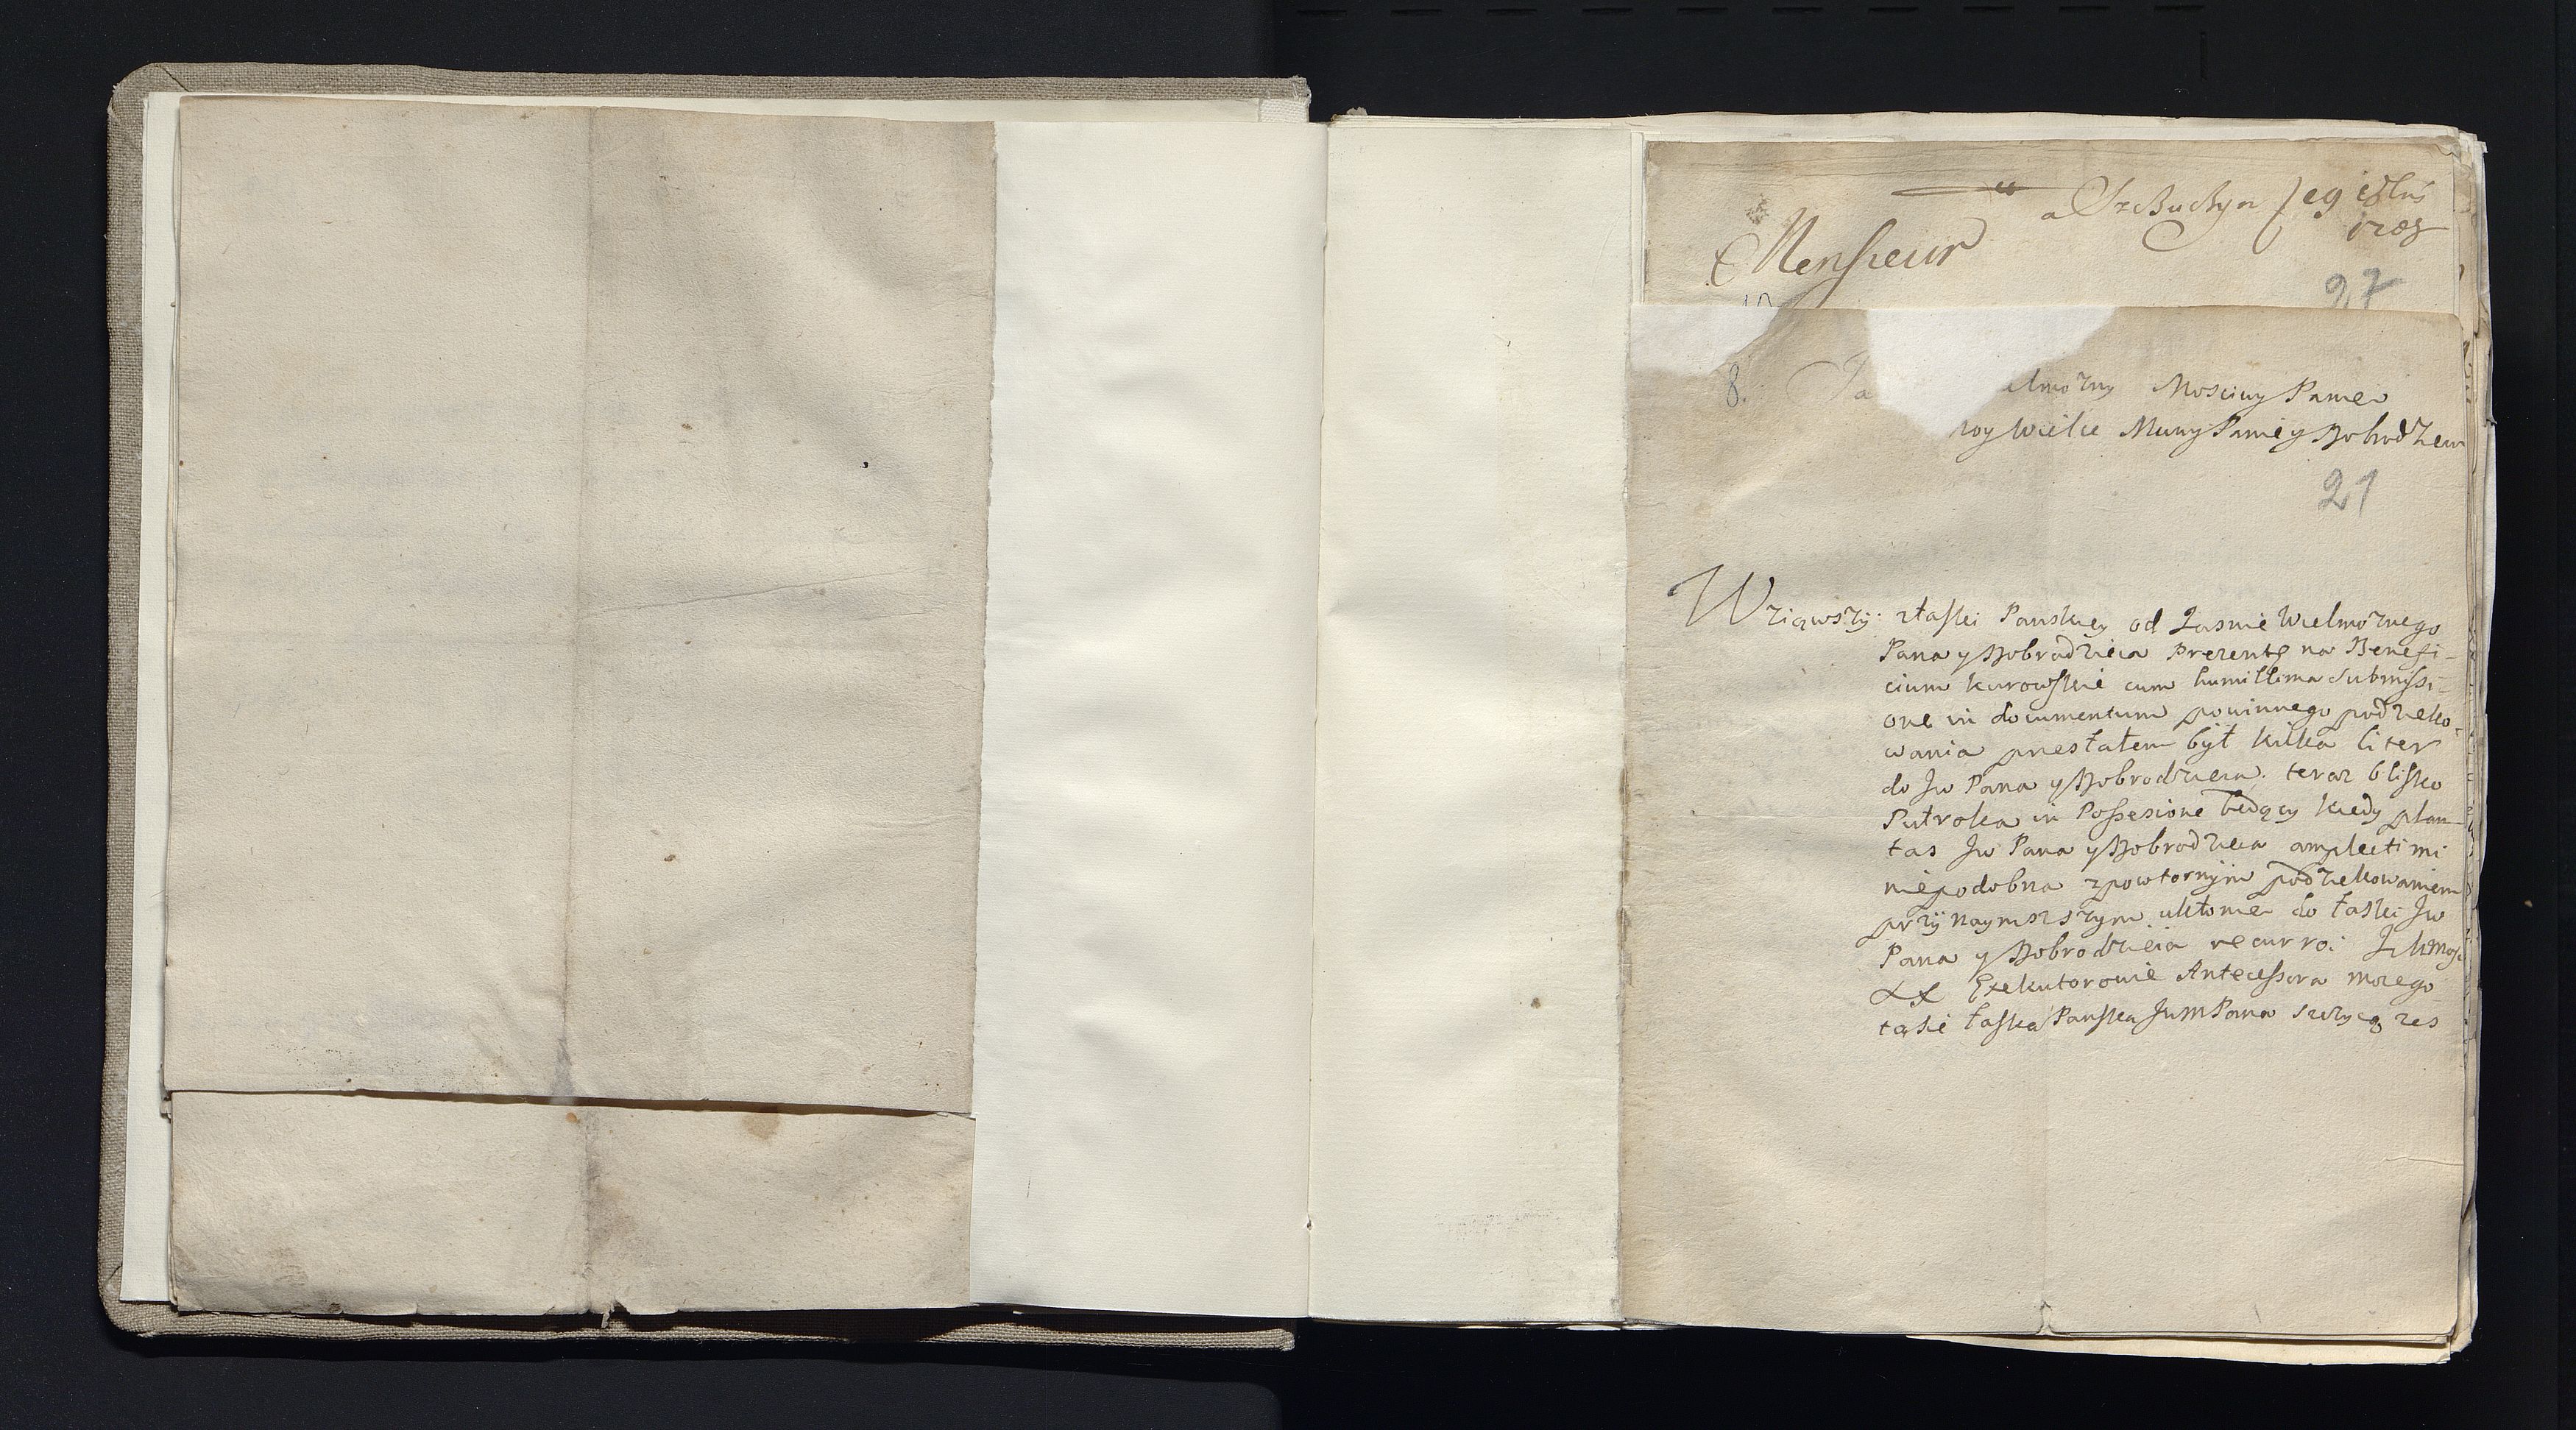 a Szczuczyn
1708
Monsieur
27
8. Ja elmożny Mosciwy Panie
moy Wielce Mciwy Panie y Dobrodzieiu
21
Wziąwszy z łaski Panskiey od Jasnie Wielmożnego
Pana y Dobrodzieia Prezentę na Benefi-
cium kurowskie cum humillima submissi-
one in documentum powinnego podzieko-
wania przesłałem był kilka liter
do Jw Pana y Dobrodzieia. teraz blisko
Pułroka in Possesione będący kiedy plan-
tas Jw Pana y Dobrodzieia amplecti mi
niepodobna z powtornym podziekowaniem
przy naynizszym ukłonie do łaski Jw
Pana y Dobrodzieia recurroi Ichmosc
XX Exekutorowie Antecessora moiego
takie łaską Panską JwmPana szczycą zes